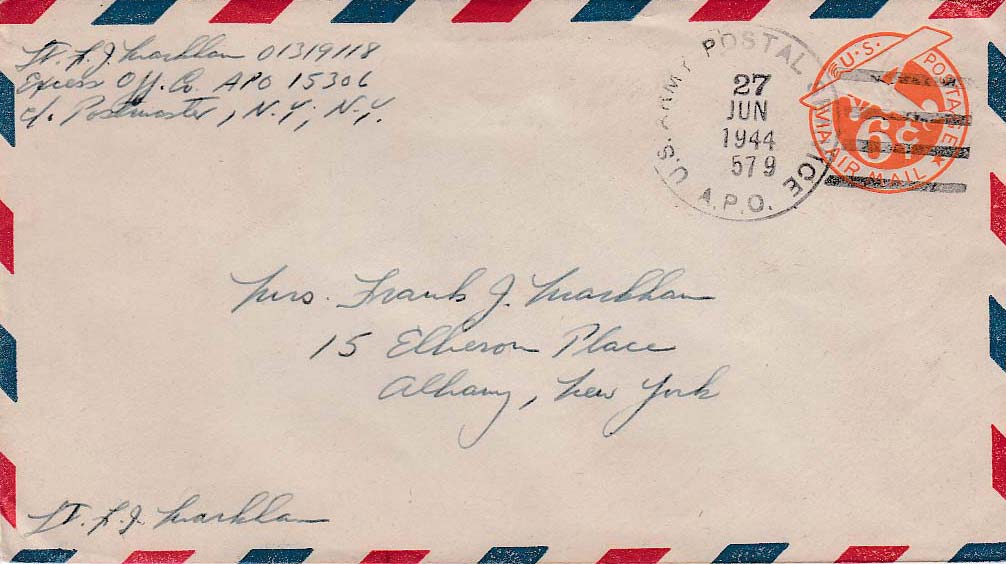 Lt. F. J. Markham 01319118
Excess Off. Co. APO 15306
c/o Postmaster, N.Y., N.Y.
U.S. ARMY POSTAL SERVICE
27
JUN
1944
579
A.P.O.
U.S. POSTAGE
6c
VIA AIR MAIL
Mrs. Frank J. Markham
15 Elberon Place
Albany, New York
Lt. F. J. Markham